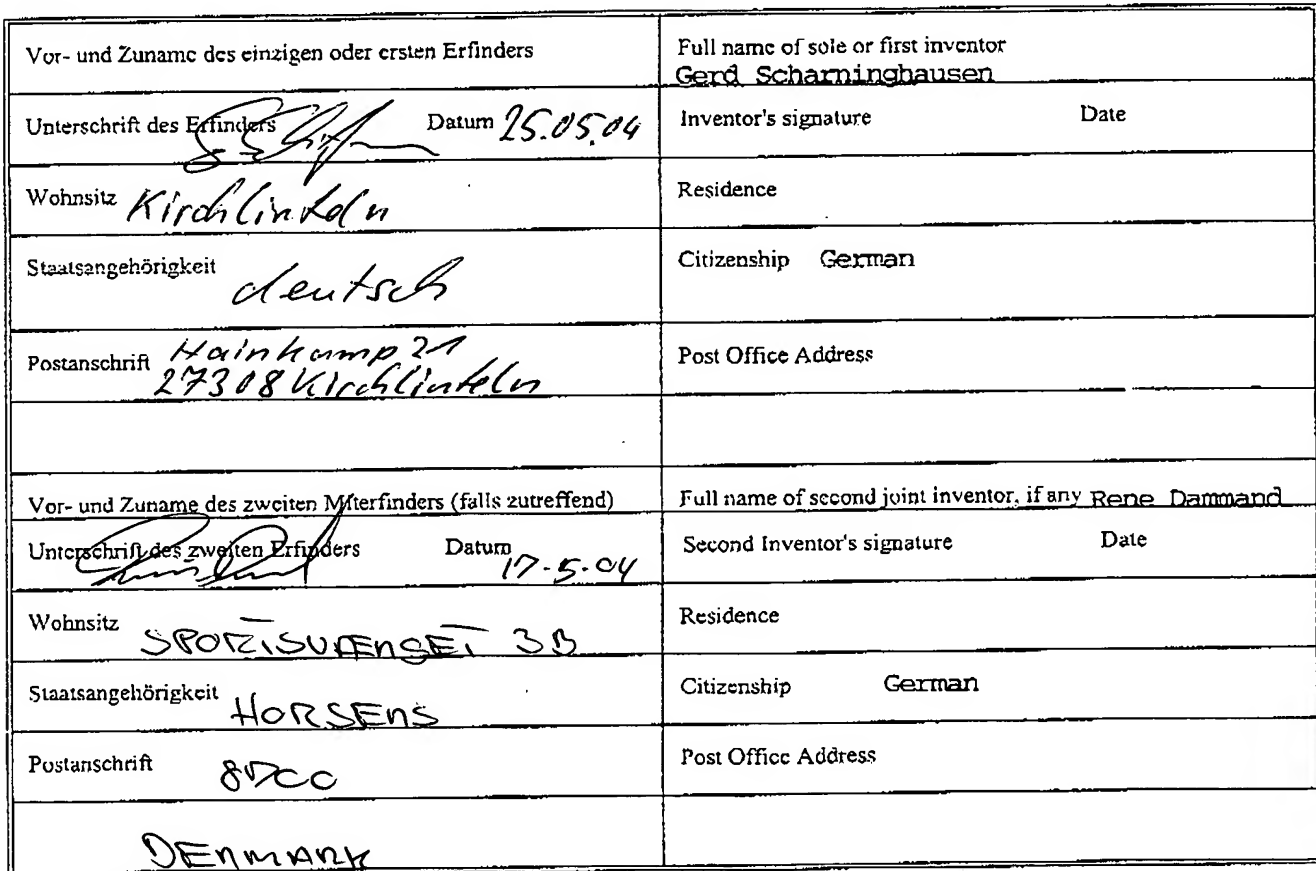 Vor- und Zuname des einzigen oder ersten Erfinders
Full name of sole or first inventor
Gerd Scharninghausen
Unterschrift des Erfinders Datum 25.05.04
Inventor's signature Date
Wohnsitz Kirchlinteln
Residence
Staatsangehörigkeit deutsch
Citizenship German
Postanschrift Hainkamp 21
27308 Kirchlinteln
Post Office Address
Vor- und Zuname des zweiten Miterfinders (falls zutreffend)
Full name of second joint inventor, if any Rene Dammand
Unterschrift des zweiten Erfinders Datum 17-5-04
Second Inventor's signature Date
Wohnsitz 3B
Residence
Staatsangehörigkeit HORSENS
Citizenship German
Postanschrift 8700
Post Office Address
DENMARK